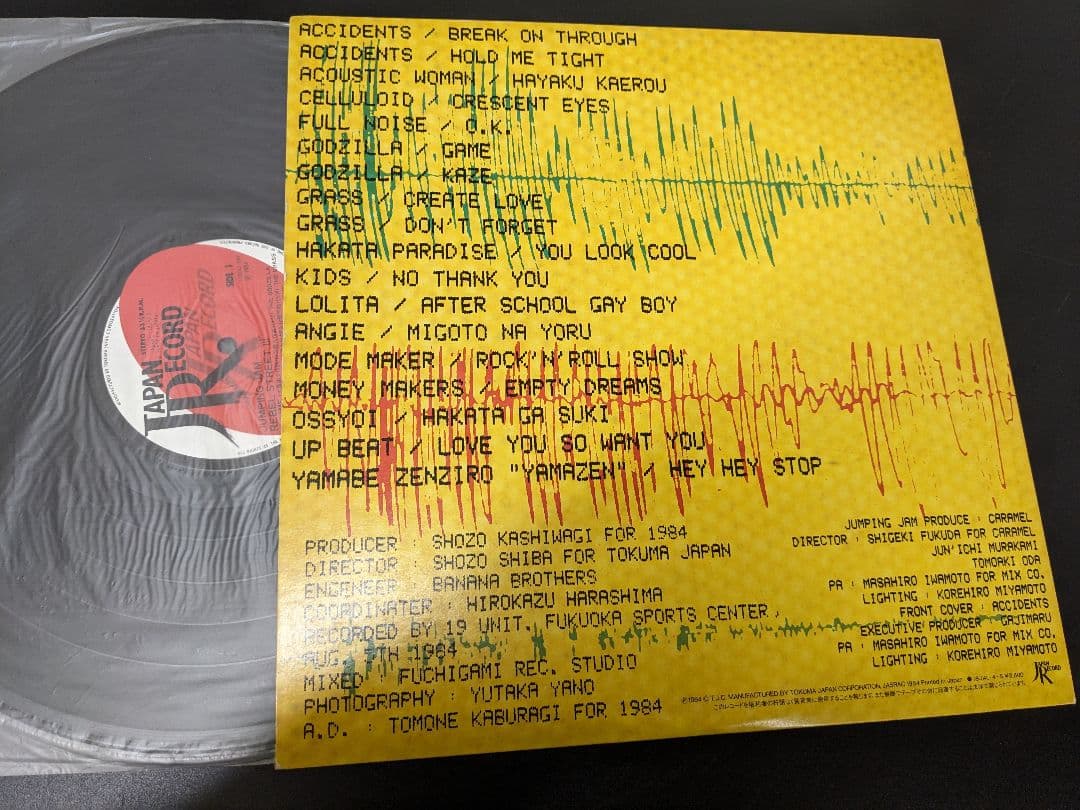 ACCIDENTS / BREAK ON THROUGH
ACCIDENTS / HOLD ME TIGHT
ACOUSTIC WOMAN / HAYAKU KAEROU
CELLULOID / CRESCENT EYES
FULL NOISE / O.K.
GODZILLA / GAME
GODZILLA / KAZE
GRASS / CREATE LOVE
GRASS / DON'T FORGET
HAKATA PARADISE / YOU LOOK COOL
KIDS / NO THANK YOU
LOLITA / AFTER SCHOOL GAY BOY
ANGIE / MIGOTO NA YORU
MODE MAKER / ROCK'N'ROLL SHOW
MONEY MAKERS / EMPTY DREAMS
OSSYOI / HAKATA GA SUKI
UP BEAT / LOVE YOU SO WANT YOU
YAMABE ZENZIRO "YAMAZEN" / HEY HEY STOP
PRODUCER : SHOZO KASHIWAGI FOR 1984
DIRECTOR : SHOZO SHIBA FOR TOKUMA JAPAN
ENGENEER : BANANA BROTHERS
COORDINATER : HIROKAZU HARASHIMA
RECORDED BY 19 UNIT. FUKUOKA SPORTS CENTER,
AUG. 7TH 1984
MIXED : FUCHIGAMI REC. STUDIO
PHOTOGRAPHY : YUTAKA YANO
A.D. : TOMONE KABURAGI FOR 1984
JUMPING JAM PRODUCE : CARAMEL
DIRECTOR : SHIGEKI FUKUDA FOR CARAMEL
JUN'ICHI MURAKAMI
TOMOAKI ODA
PA : MASAHIRO IWAMOTO FOR MIX CO.
LIGHTING : KOREHIRO MIYAMOTO
FRONT COVER : ACCIDENTS
EXECUTIVE PRODUCER : GAJIMARU
PA : MASAHIRO IWAMOTO FOR MIX CO.
LIGHTING : KOREHIRO MIYAMOTO
JAPAN RECORD
℗1984 © T.J.C. MANUFACTURED BY TOKUMA JAPAN CORPORATION, JASRAC 1984 Printed in Japan
JAPAN
RECORD
JR
SIDE 1
JUMPING JAM
REBEL STREET III